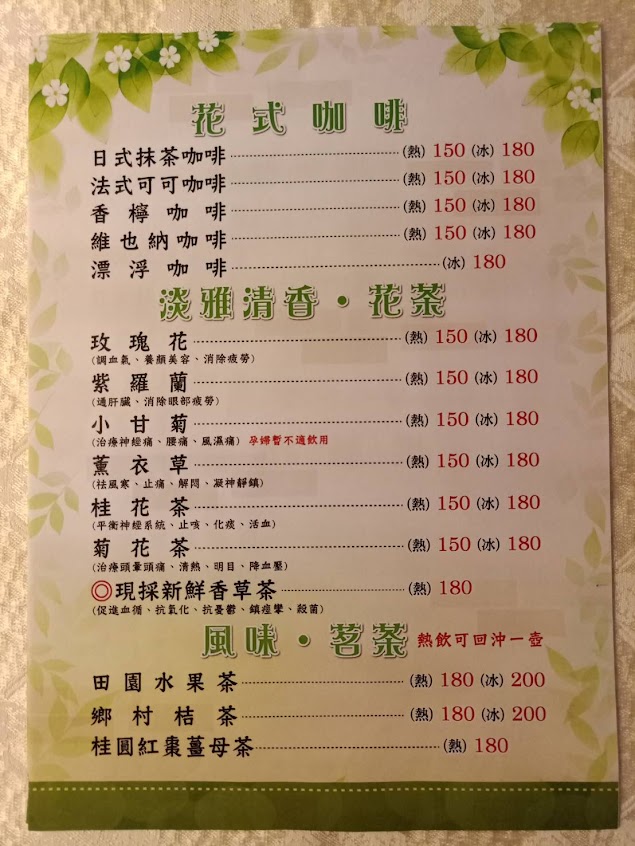 花式咖啡
日式抹茶咖啡 (熱) 150 (冰) 180
法式可可咖啡 (熱) 150 (冰) 180
香檸咖啡 (熱) 150 (冰) 180
維也納咖啡 (熱) 150 (冰) 180
漂浮咖啡 (冰) 180
淡雅清香・花茶
玫瑰花 (熱) 150 (冰) 180
(調血氣、養顏美容、消除疲勞)
紫羅蘭 (熱) 150 (冰) 180
(通肝臟、消除眼部疲勞)
小甘菊 (熱) 150 (冰) 180
(治療神經痛、腰痛、風濕痛) 孕婦暫不適飲用
薰衣草 (熱) 150 (冰) 180
(祛風寒、止痛、解悶、凝神靜鎮)
桂花茶 (熱) 150 (冰) 180
(平衡神經系統、止咳、化痰、活血)
菊花茶 (熱) 150 (冰) 180
(治療頭暈頭痛、清熱、明目、降血壓)
◎現採新鮮香草茶 (熱) 180
(促進血循、抗氧化、抗憂鬱、鎮痙攣、殺菌)
風味・茗茶 熱飲可回沖一壺
田園水果茶 (熱) 180 (冰) 200
鄉村桔茶 (熱) 180 (冰) 200
桂圓紅棗薑母茶 (熱) 180